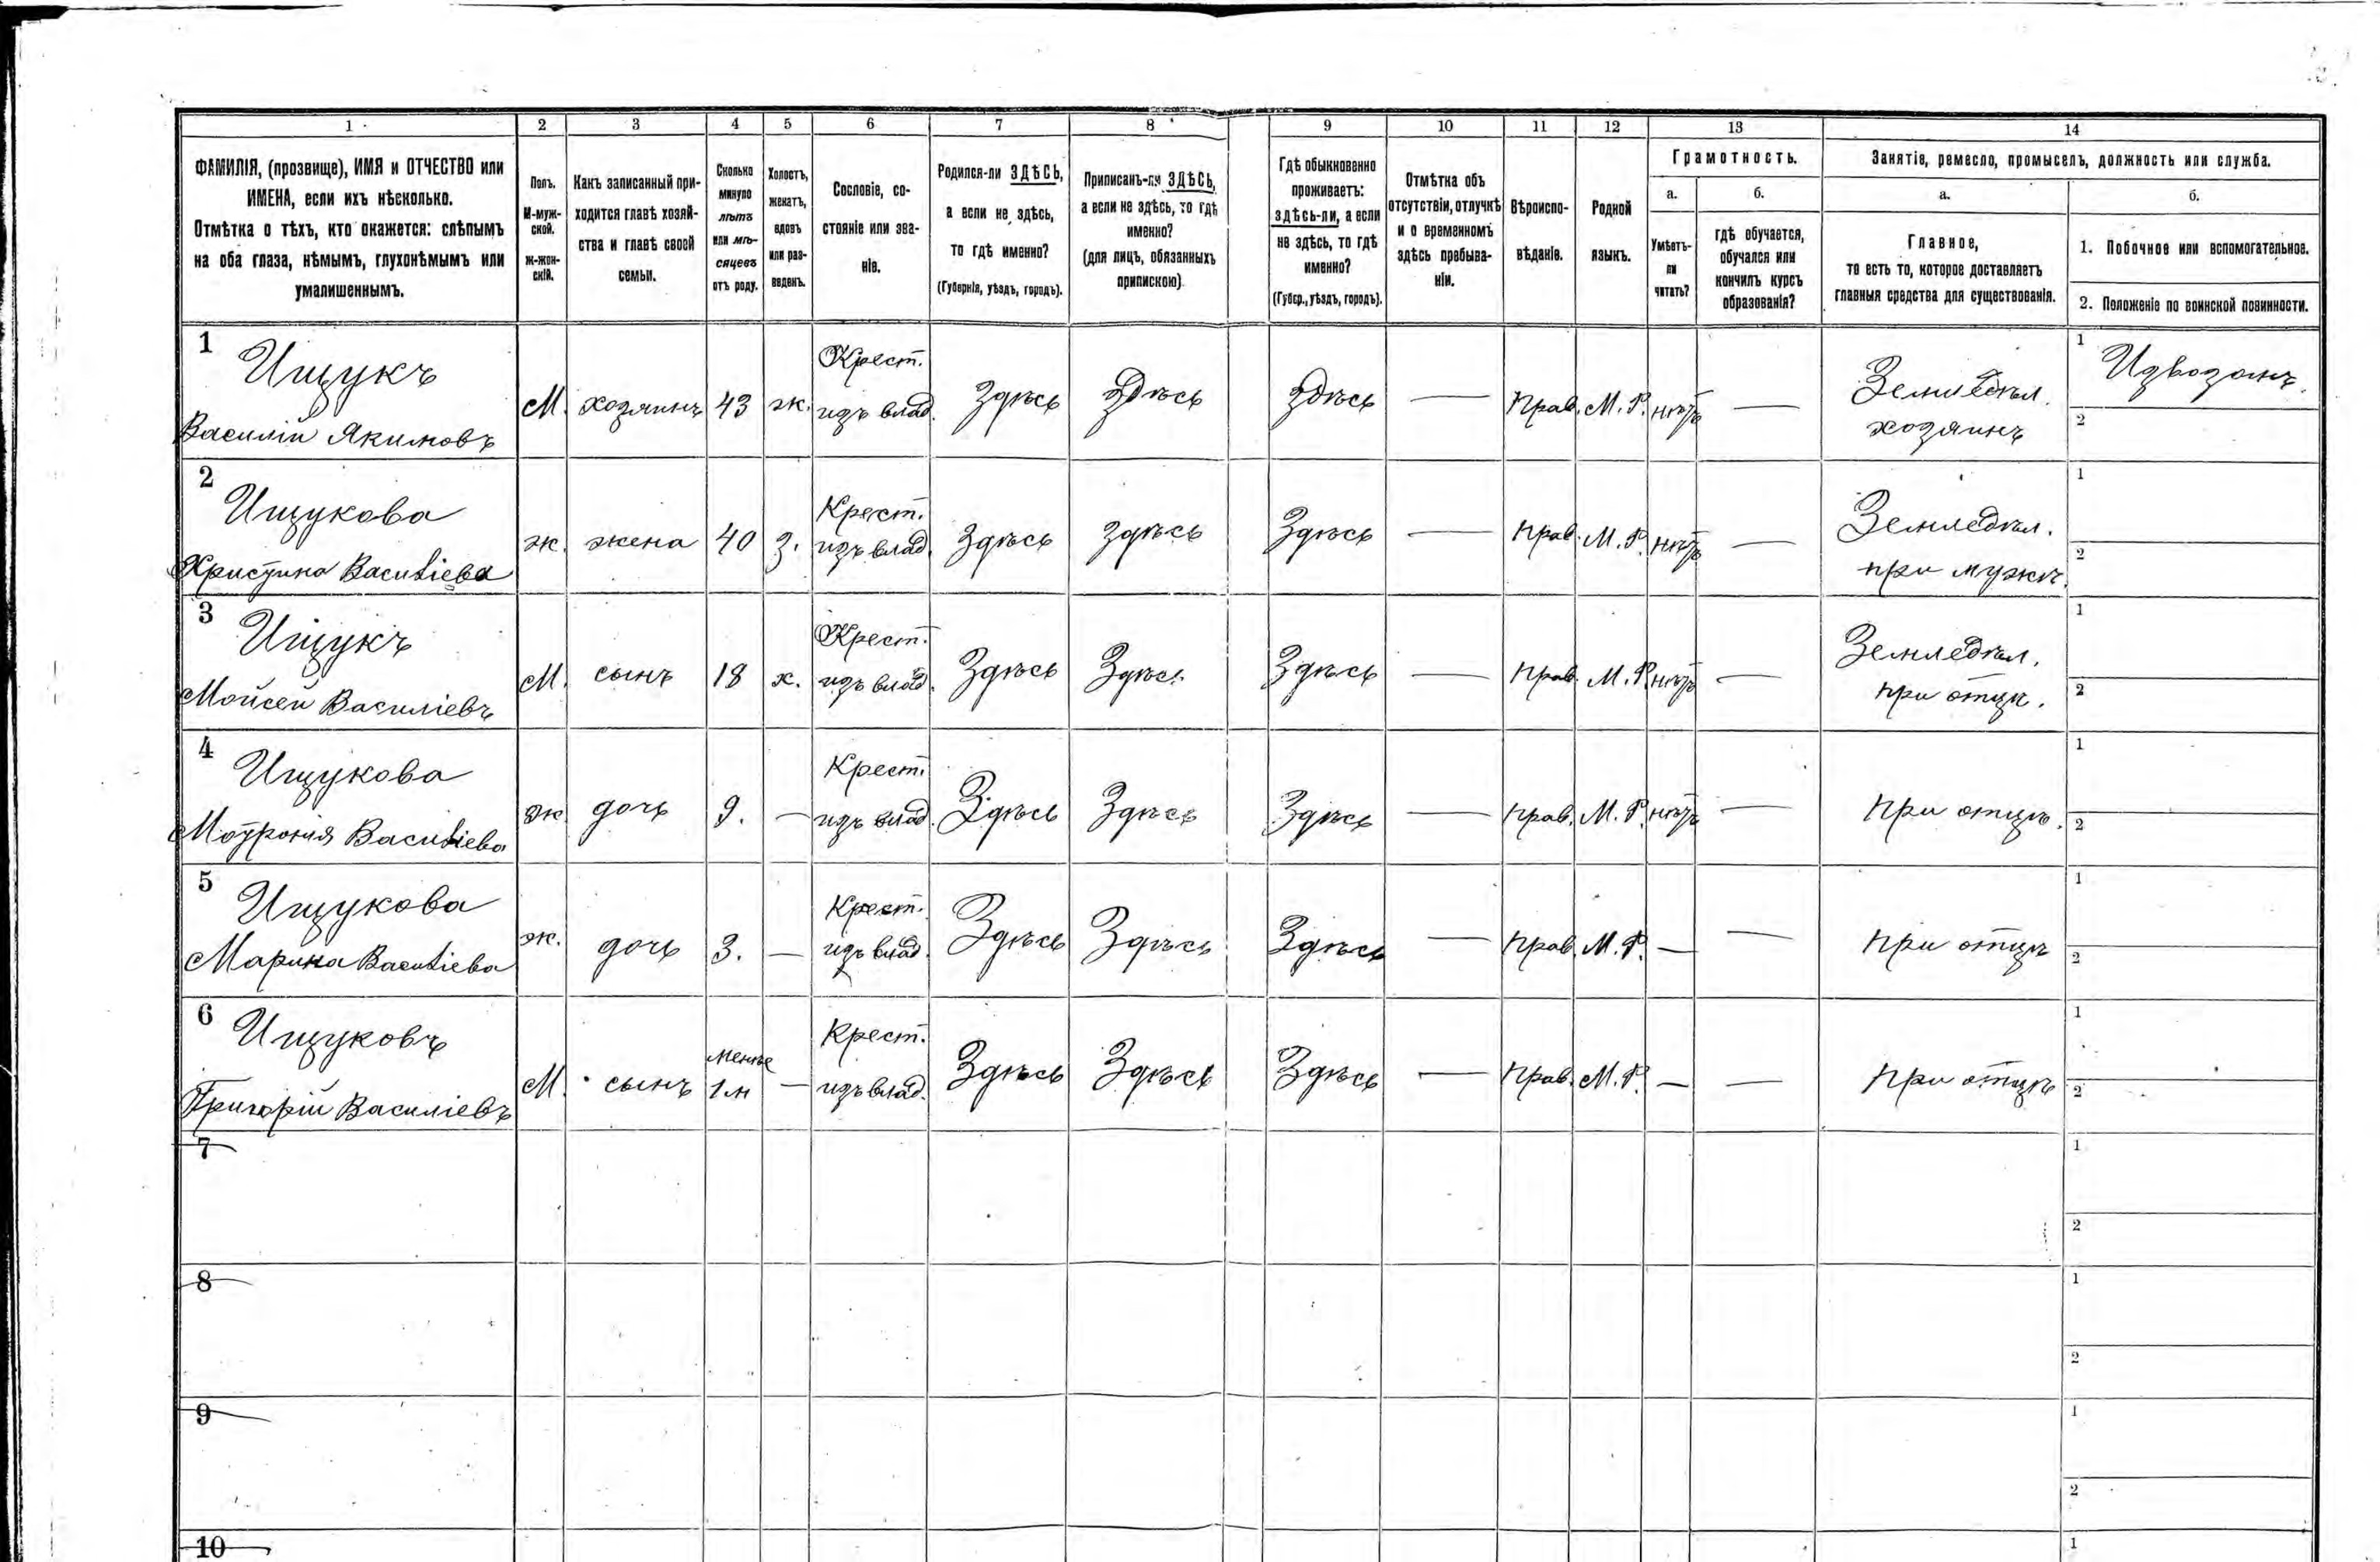 1 2 3 4 5 6 7 8 9 10 11 12 13 14
ФАМИЛІЯ, (прозвище), ИМЯ и ОТЧЕСТВО или
ИМЕНА, если ихъ нѣсколько.
Отмѣтка о тѣхъ, кто окажется: слѣпымъ
на оба глаза, нѣмымъ, глухонѣмымъ или
умалишеннымъ.
Полъ.
М-муж-
ской.
ж-жен-
скій.
Какъ записанный при-
ходится главѣ хозяй-
ства и главѣ своей
семьи.
Сколько
минуло
лѣтъ
или мѣ-
сяцевъ
отъ роду.
Холостъ,
женатъ,
вдовъ
или раз-
веденъ.
Сословіе, со-
стояніе или зва-
ніе.
Родился-ли ЗДѢСЬ,
а если не здѣсь,
то гдѣ именно?
(Губернія, уѣздъ, городъ).
Приписанъ-ли ЗДѢСЬ,
а если не здѣсь, то гдѣ
именно?
(для лицъ, обязанныхъ
припискою)
Гдѣ обыкновенно
проживаетъ:
здѣсь-ли, а если
не здѣсь, то гдѣ
именно?
(Губер., уѣздъ, городъ).
Отмѣтка объ
отсутствіи, отлучкѣ
и о временномъ
здѣсь пребыва-
ніи.
Вѣроиспо-
вѣданіе.
Родной
языкъ.
Грамотность.
а.
Умѣетъ-
ли
читать?
б.
гдѣ обучается,
обучался или
кончилъ курсъ
образованія?
Занятіе, ремесло, промыселъ, должность или служба.
а.
Главное,
то есть то, которое доставляетъ
главныя средства для существованія.
б.
1. Побочное или вспомогательное.
2. Положеніе по воинской повинности.
1 Ищукъ
Василій Якимовъ
М. хозяинъ 43 ж.
Крест.
изъ влад.
Здѣсь Здѣсь Здѣсь — Прав. М. Р. нѣтъ —
Земледѣл.
хозяинъ
1 Извозомъ.
2
2 Ищукова
Христина Василіева
ж. жена 40 з.
Крест.
изъ влад.
Здѣсь Здѣсь Здѣсь — Прав. М. Р. нѣтъ —
Земледѣл.
при мужѣ.
1
2
3 Ищукъ
Мойсей Василіевъ
М. сынъ 18 х.
Крест.
изъ влад.
Здѣсь Здѣсь Здѣсь — Прав. М. Р. нѣтъ —
Земледѣл.
при отцѣ.
1
2
4 Ищукова
Василіева
ж дочь 9. —
Крест.
изъ влад.
Здѣсь Здѣсь Здѣсь — Прав. М. Р. нѣтъ —
при отцѣ.
1
2
5 Ищукова
Марина Василіева
ж. дочь 3. —
Крест.
изъ влад.
Здѣсь Здѣсь Здѣсь — Прав. М. Р. — —
при отцѣ
1
2
6 Ищуковъ
Григорій Василіевъ
М. сынъ
менѣе
1 м —
Крест.
изъ влад.
Здѣсь Здѣсь Здѣсь — Прав. М. Р. — —
при отцѣ
1
2
7
1
2
8
1
2
9
1
2
10
1